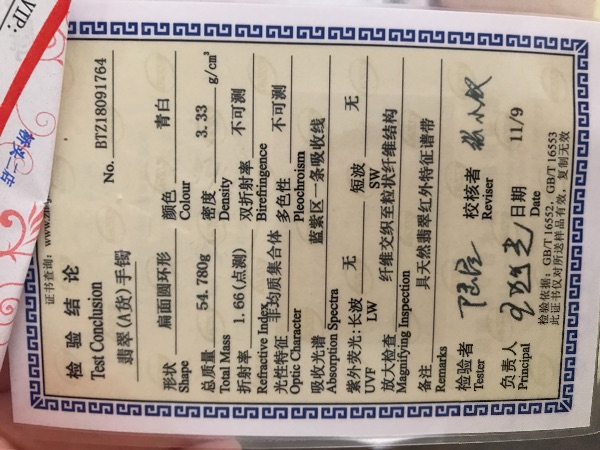 VIP:
证书查询: www.z
No. BTZ18091764
检验结论
Test Conclusion 翡翠(A货)手镯
形状 扁面圆环形 颜色 青白
Shape Colour
总质量 54.780g 密度 3.33 g/cm³
Total Mass Density
折射率 1.66(点测) 双折射率 不可测
Refractive Index Birefringence
光性特征 非均质集合体 多色性 不可测
Optic Character Pleochroism
吸收光谱 蓝紫区一条吸收线
Absorption Spectra
紫外荧光:长波 无 短波 无
UVF LW SW
放大检查 纤维交织至粒状纤维结构
Magnifying Inspection
备注 具天然翡翠红外特征谱带
Remarks
检验者 校核者
Tester Reviser
负责人 日期 11/9
Principal Date
检验依据: GB/T 16552, GB/T 16553
此证书仅对所送样品有效, 复制无效